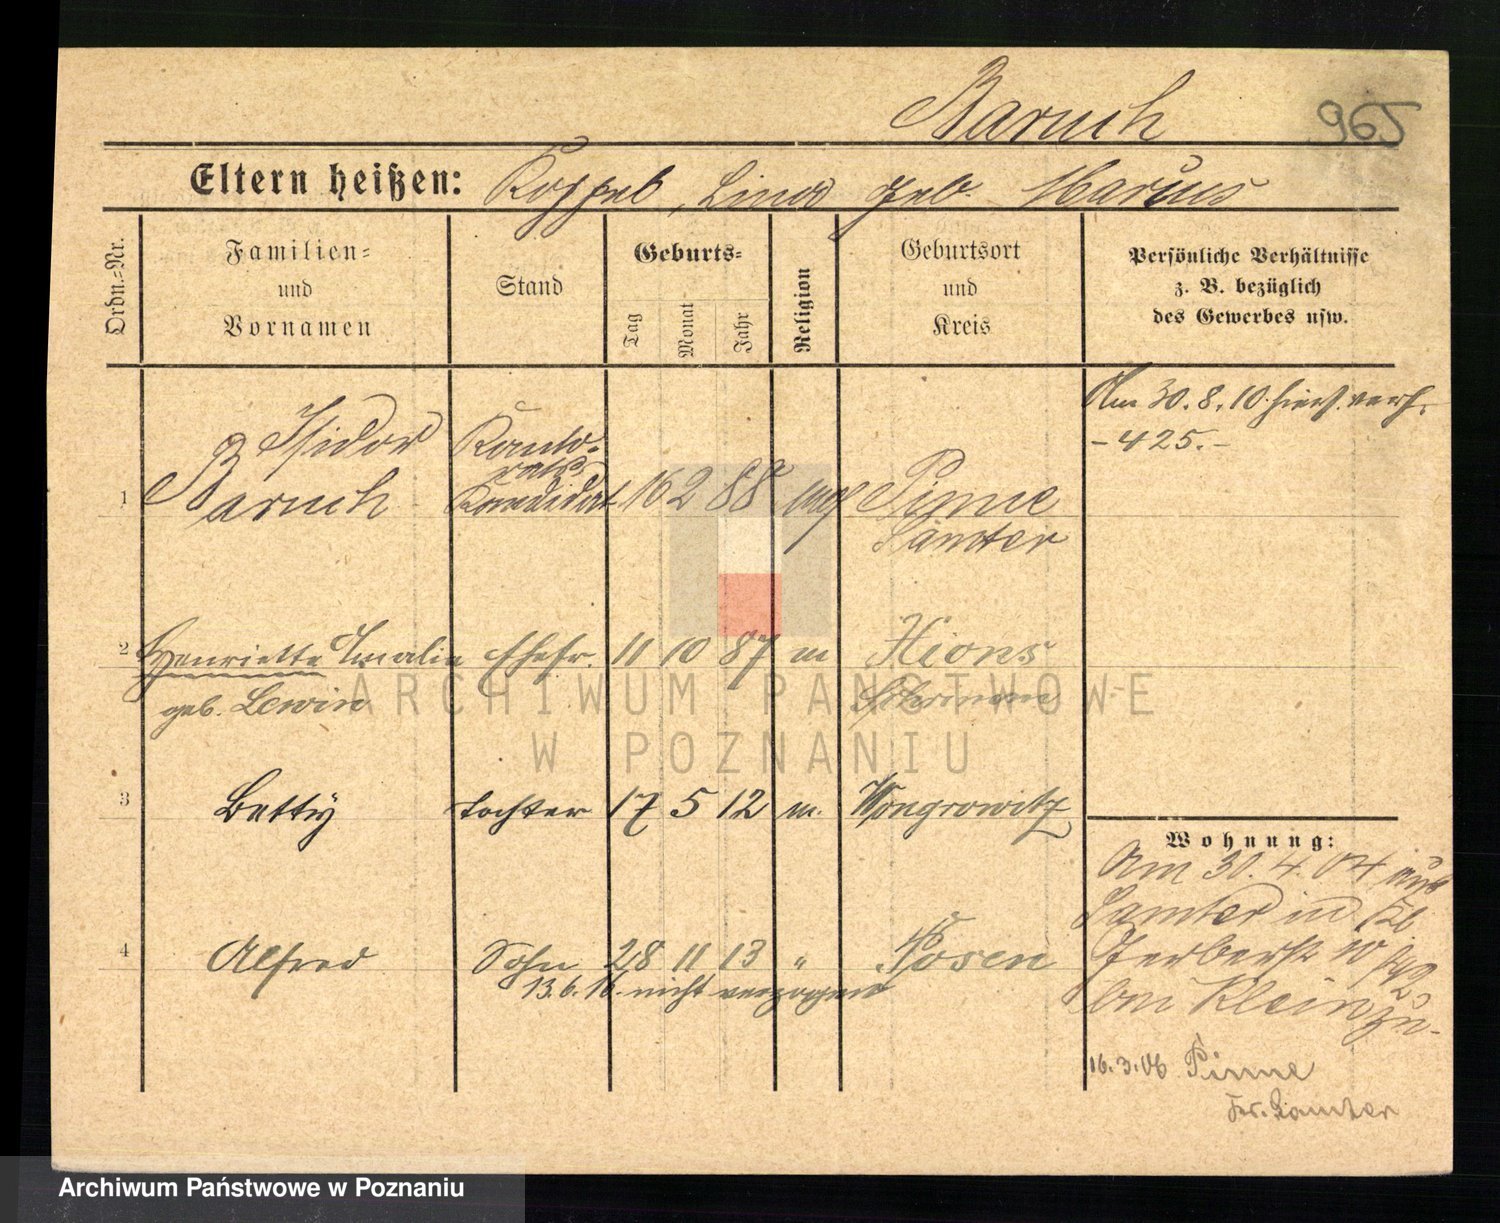 Baruch 965
Eltern heißen: Koppel, Lina geb. Marcus
Ordn.-Nr.
Familien-
und
Vornamen
Stand
Geburts-
Tag
Monat
Jahr
Religion
Geburtsort
und
Kreis
Persönliche Verhältnisse
z. B. bezüglich
des Gewerbes usw.
Am 30.8.10. hiers. verh.
- 425. -
1 Isidor
Baruch
Kandidat 16 2 88 mos Pinne
Samter
2 Henriette Amalie Ehefr. 11 10 87 m Xions
geb. Lewin Schrimm
3 Betty Tochter 17 5 12 m. Wongrowitz
4 Alfred Sohn 28 11 13 " Posen
13.6.16. nicht verzogen
Wohnung:
Am 30.4.04 aus
Samter in
Gerberstr 10
bei Klein zu.
16.3.06 Pinne
Kr. Samter
ARCHIWUM PAŃSTWOWE
W POZNANIU
Archiwum Państwowe w Poznaniu